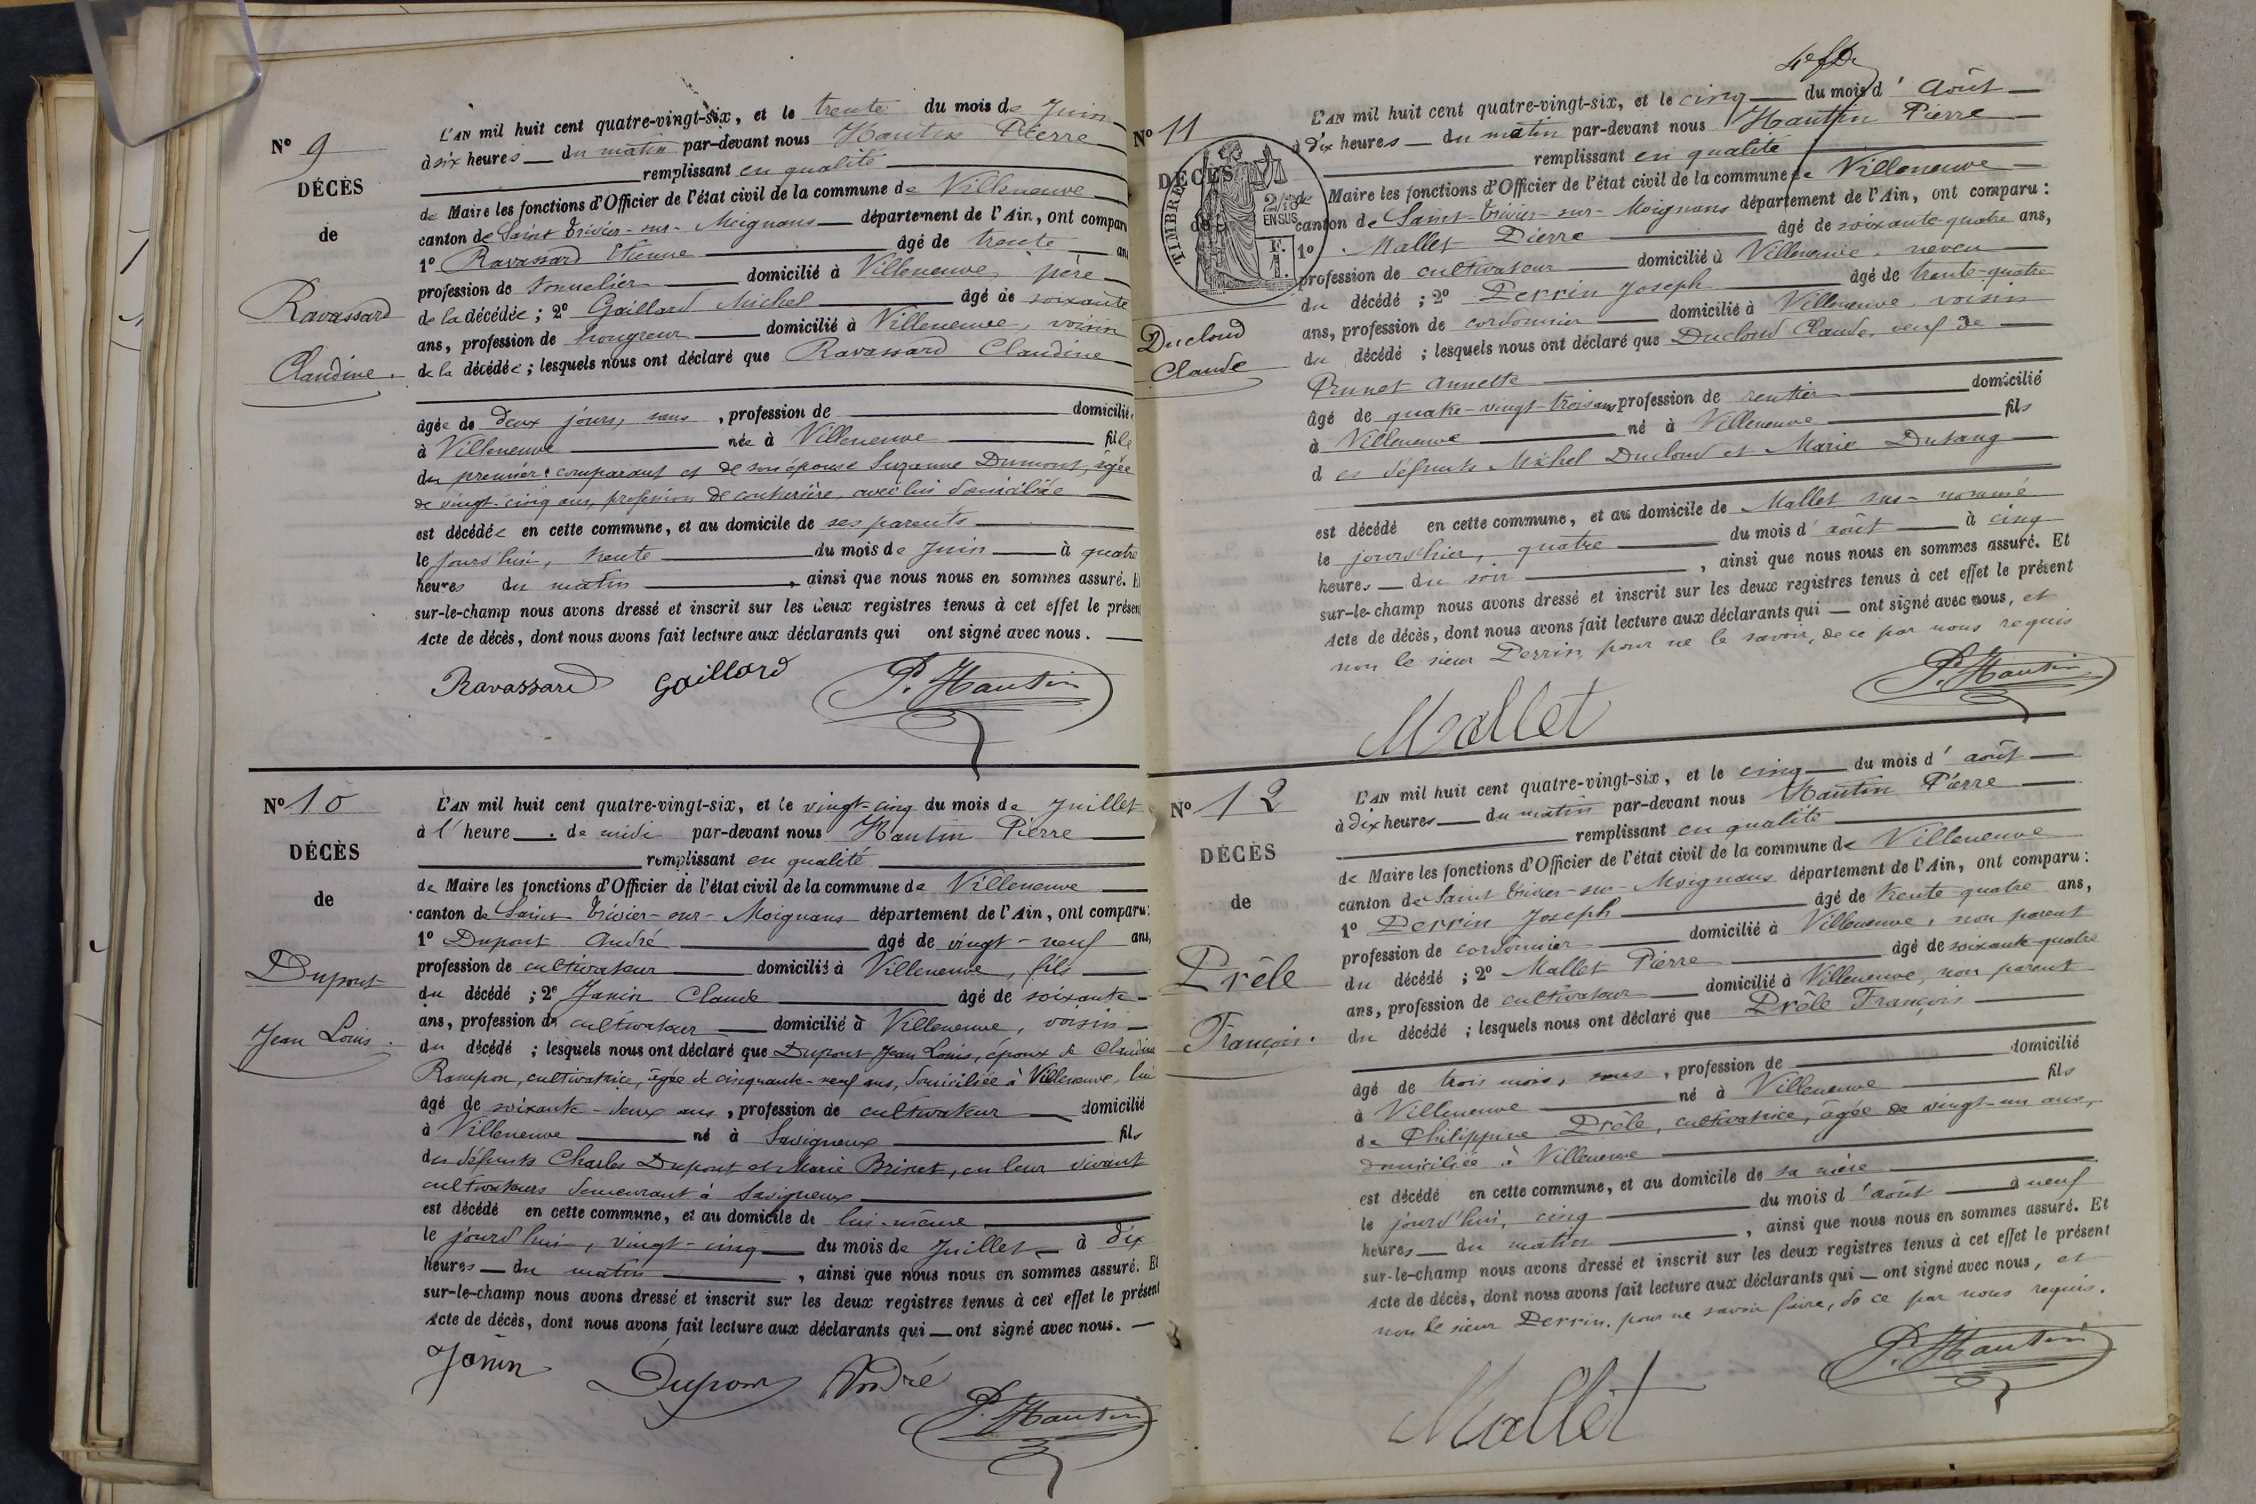 N° 9
DÉCÈS
de
Ravassard
Claudine.
L'AN mil huit cent quatre-vingt-six, et le trente du mois de Juin
à six heures du matin par-devant nous Hautin Pierre
remplissant en qualité
de Maire les fonctions d'Officier de l'état civil de la commune de Villeneuve
canton de Saint Trivier-sur-Moignans département de l'Ain, ont comparu
1° Ravassard Etienne âgé de trente ans
profession de tonnelier domicilié à Villeneuve, père
de la décédée; 2° Gaillard Michel âgé de soixante
ans, profession de hongreur domicilié à Villeneuve, voisin
de la décédée; lesquels nous ont déclaré que Ravassard Claudine
âgée de deux jours, sans, profession de domiciliée
à Villeneuve née à Villeneuve fille
du premier comparant et de son épouse Suzanne Dumont, âgée
de vingt-cinq ans, profession de couturière, avec lui domiciliée
est décédée en cette commune, et au domicile de ses parents
le jourd'hui, trente du mois de Juin à quatre
heures du matin, ainsi que nous nous en sommes assuré. Et
sur-le-champ nous avons dressé et inscrit sur les deux registres tenus à cet effet le présent
Acte de décès, dont nous avons fait lecture aux déclarants qui ont signé avec nous.
Ravassard Gaillard P. Hautin
N° 10
DÉCÈS
de
Dupont
Jean Louis.
L'AN mil huit cent quatre-vingt-six, et le vingt-cinq du mois de Juillet
à l'heure de midi par-devant nous Hautin Pierre
remplissant en qualité
de Maire les fonctions d'Officier de l'état civil de la commune de Villeneuve
canton de Saint Trivier-sur-Moignans département de l'Ain, ont comparu:
1° Dupont André âgé de vingt-neuf ans,
profession de cultivateur domicilié à Villeneuve, fils
du décédé; 2° Janin Claude âgé de soixante-
ans, profession de cultivateur domicilié à Villeneuve, voisin
du décédé; lesquels nous ont déclaré que Dupont Jean Louis, époux de Claudine
Rampon, cultivatrice, âgée de cinquante-neuf ans, domiciliée à Villeneuve, lui
âgé de soixante-deux ans, profession de cultivateur domicilié
à Villeneuve né à Savigneux fils
des défunts Charles Dupont et Marie Brinet, en leur vivant
cultivateurs demeurant à Savigneux
est décédé en cette commune, et au domicile de lui-même
le jourd'hui, vingt-cinq du mois de Juillet à dix
heures du matin, ainsi que nous nous en sommes assuré. Et
sur-le-champ nous avons dressé et inscrit sur les deux registres tenus à cet effet le présent
Acte de décès, dont nous avons fait lecture aux déclarants qui ont signé avec nous.
Janin Dupont André
P. Hautin
N° 11
DÉCÈS
de
TIMBRE
EN SUS
Ducloud
Claude
L'AN mil huit cent quatre-vingt-six, et le cinq du mois d'Août
à dix heures du matin par-devant nous Hautin Pierre
remplissant en qualité
de Maire les fonctions d'Officier de l'état civil de la commune de Villeneuve
canton de Saint-Trivier-sur-Moignans département de l'Ain, ont comparu:
1° Mallet Pierre âgé de soixante-quatre ans,
profession de cultivateur domicilié à Villeneuve, neveu
du décédé; 2° Perrin Joseph âgé de trente-quatre
ans, profession de cordonnier domicilié à Villeneuve, voisin
du décédé; lesquels nous ont déclaré que Ducloud Claude, veuf de
Annette
âgé de quatre-vingt-trois ans profession de rentier domicilié
à Villeneuve né à Villeneuve fils
des défunts Michel Ducloud et Marie Dutang
est décédé en cette commune, et au domicile de Mallet sus-nommé
le jourd'hier, quatre du mois d'août à cinq
heures du soir, ainsi que nous nous en sommes assuré. Et
sur-le-champ nous avons dressé et inscrit sur les deux registres tenus à cet effet le présent
Acte de décès, dont nous avons fait lecture aux déclarants qui ont signé avec nous, et
non le sieur Perrin, pour ne le savoir, de ce par nous requis
P. Hautin
Mallet
N° 12
DÉCÈS
de
Prêle
François.
L'AN mil huit cent quatre-vingt-six, et le cinq du mois d'août
à dix heures du matin par-devant nous Hautin Pierre
remplissant en qualité
de Maire les fonctions d'Officier de l'état civil de la commune de Villeneuve
canton de Saint Trivier-sur-Moignans département de l'Ain, ont comparu:
1° Perrin Joseph âgé de trente-quatre ans,
profession de cordonnier domicilié à Villeneuve, non parent
du décédé; 2° Mallet Pierre âgé de soixante-quatre
ans, profession de cultivateur domicilié à Villeneuve, non parent
du décédé; lesquels nous ont déclaré que Prêle François
âgé de trois mois, sans, profession de domicilié
à Villeneuve né à Villeneuve fils
de Philippine Prêle, cultivatrice, âgée de vingt-un ans,
domiciliée à Villeneuve
est décédé en cette commune, et au domicile de sa mère
le jourd'hui, cinq du mois d'août à neuf
heures du matin, ainsi que nous nous en sommes assuré. Et
sur-le-champ nous avons dressé et inscrit sur les deux registres tenus à cet effet le présent
Acte de décès, dont nous avons fait lecture aux déclarants qui ont signé avec nous, et
non le sieur Perrin, pour ne savoir faire, de ce par nous requis.
P. Hautin
Mallet